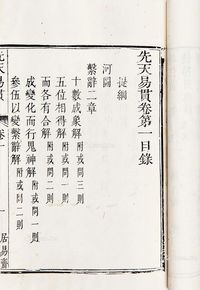 先天易貫卷第一目錄
提綱
河圖
繫辭二章
十數成象解附或問三則
五位相得解附或問一則
而各有合解附或問二則
成變化而行鬼神解附或問一則
參伍以變繫辭解附或問二則
先天易貫
卷一
一
居易齋